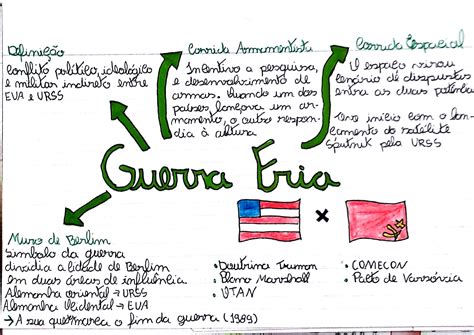 Definição
conflito político, ideológico
e militar indireto entre
EUA e URSS
Corrida Armamentista
Incentivo a pesquisa,
e desenvolvimento de
armas. Quando um dos
países lançava um ar-
mamento, o outro respon-
dia à altura
Corrida Espacial
O espaço virou
cenário de disputas
entre as duas potências
Teve início com o lan-
çamento do satélite
Sputnik pela URSS
Guerra Fria
Muro de Berlim
Símbolo da guerra
dividia a cidade de Berlim
em duas áreas de influência
Alemanha oriental → URSS
Alemanha Ocidental → EUA
→ A sua queda marca o fim da guerra (1989)
X
• Doutrina Truman
• Plano Marshall
• OTAN
• COMECON
• Pacto de Varsóvia